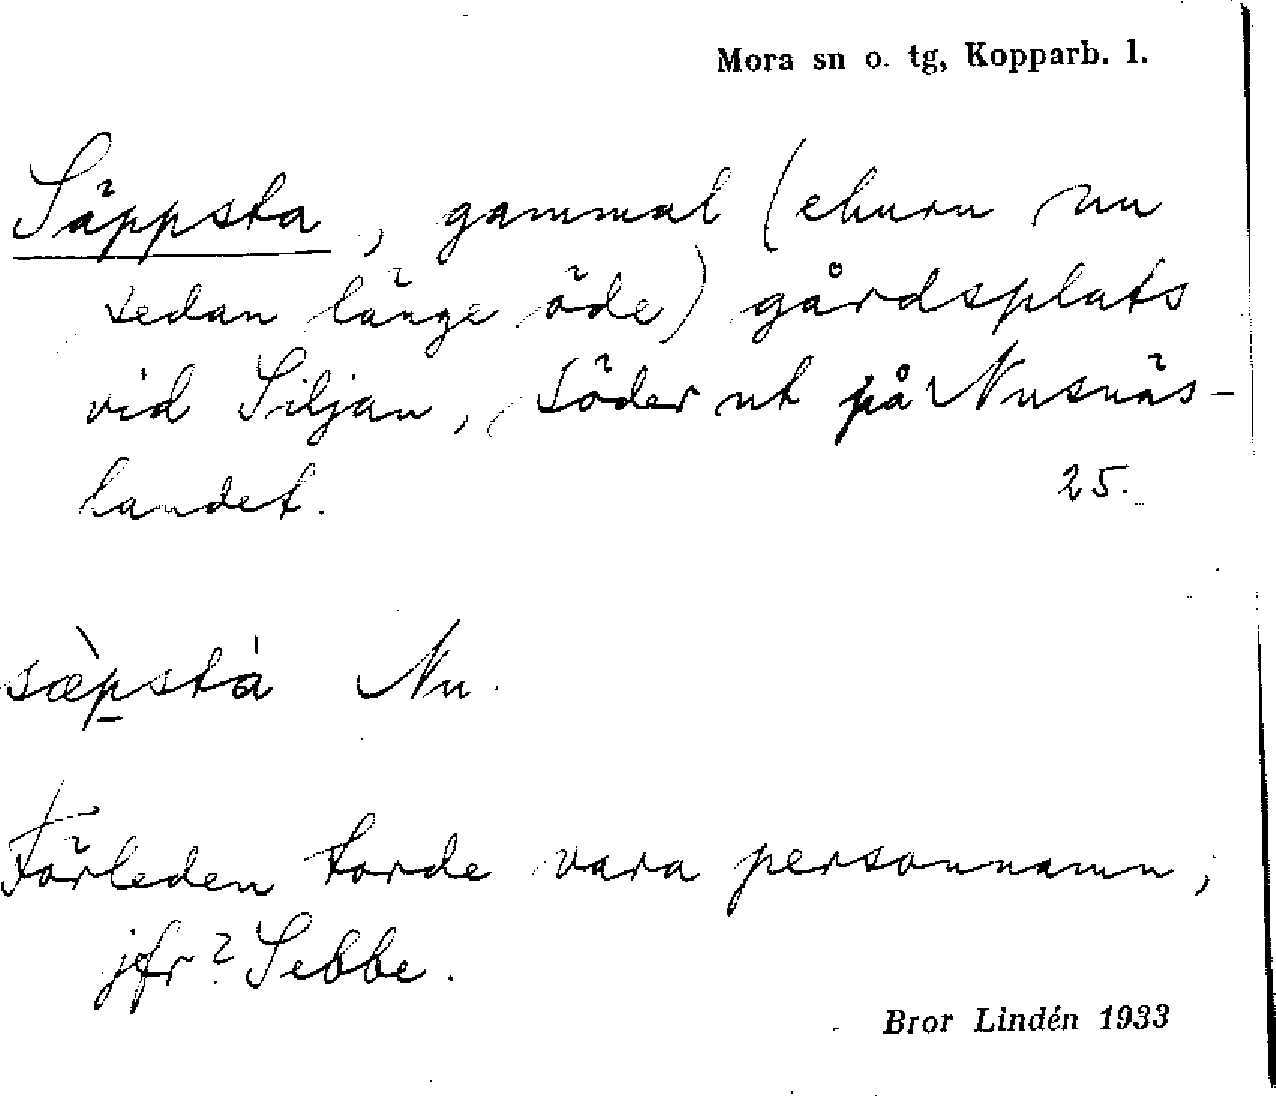 Mora sn o. tg, Kopparb. l.
Säppsta, gammal (ehuru nu
sedan länge öde) gårdsplats
vid Siljan, söder ut på Nusnäs-
landet. 25.
sæ̀pstà Nu.
Förleden torde vara personnamn;
jfr? Sebbe.
Bror Lindén 1933